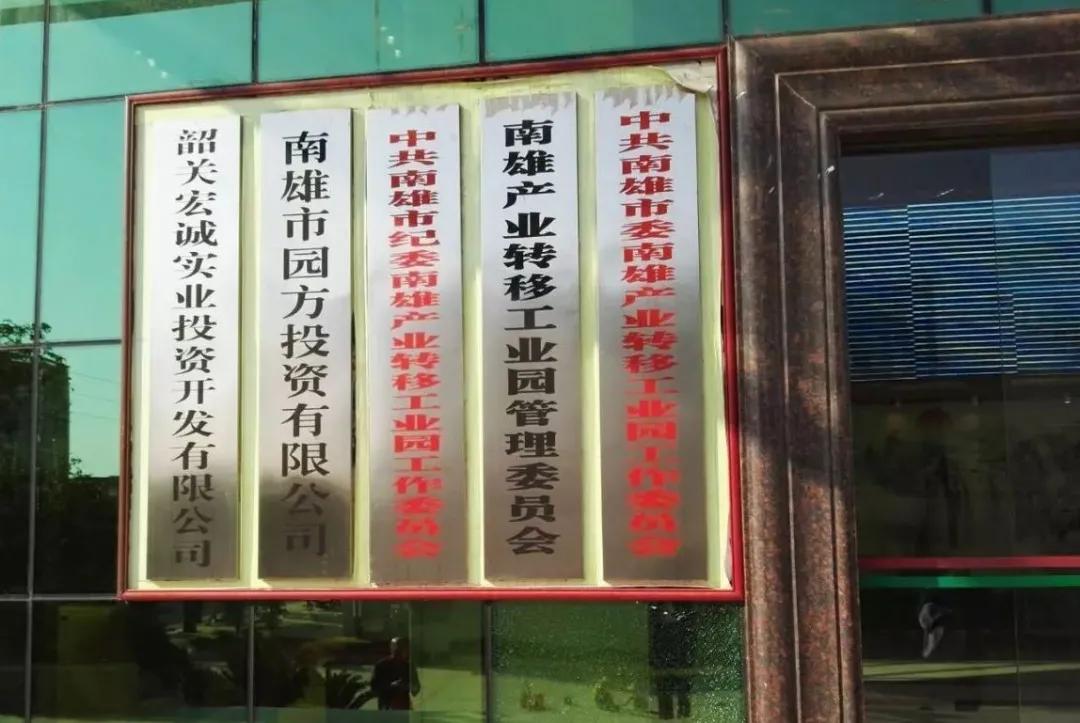 韶关宏诚实业投资开发有限公司
南雄市园方投资有限公司
中共南雄市纪委南雄产业转移工业园工作委员会
南雄产业转移工业园管理委员会
中共南雄市委南雄产业转移工业园工作委员会